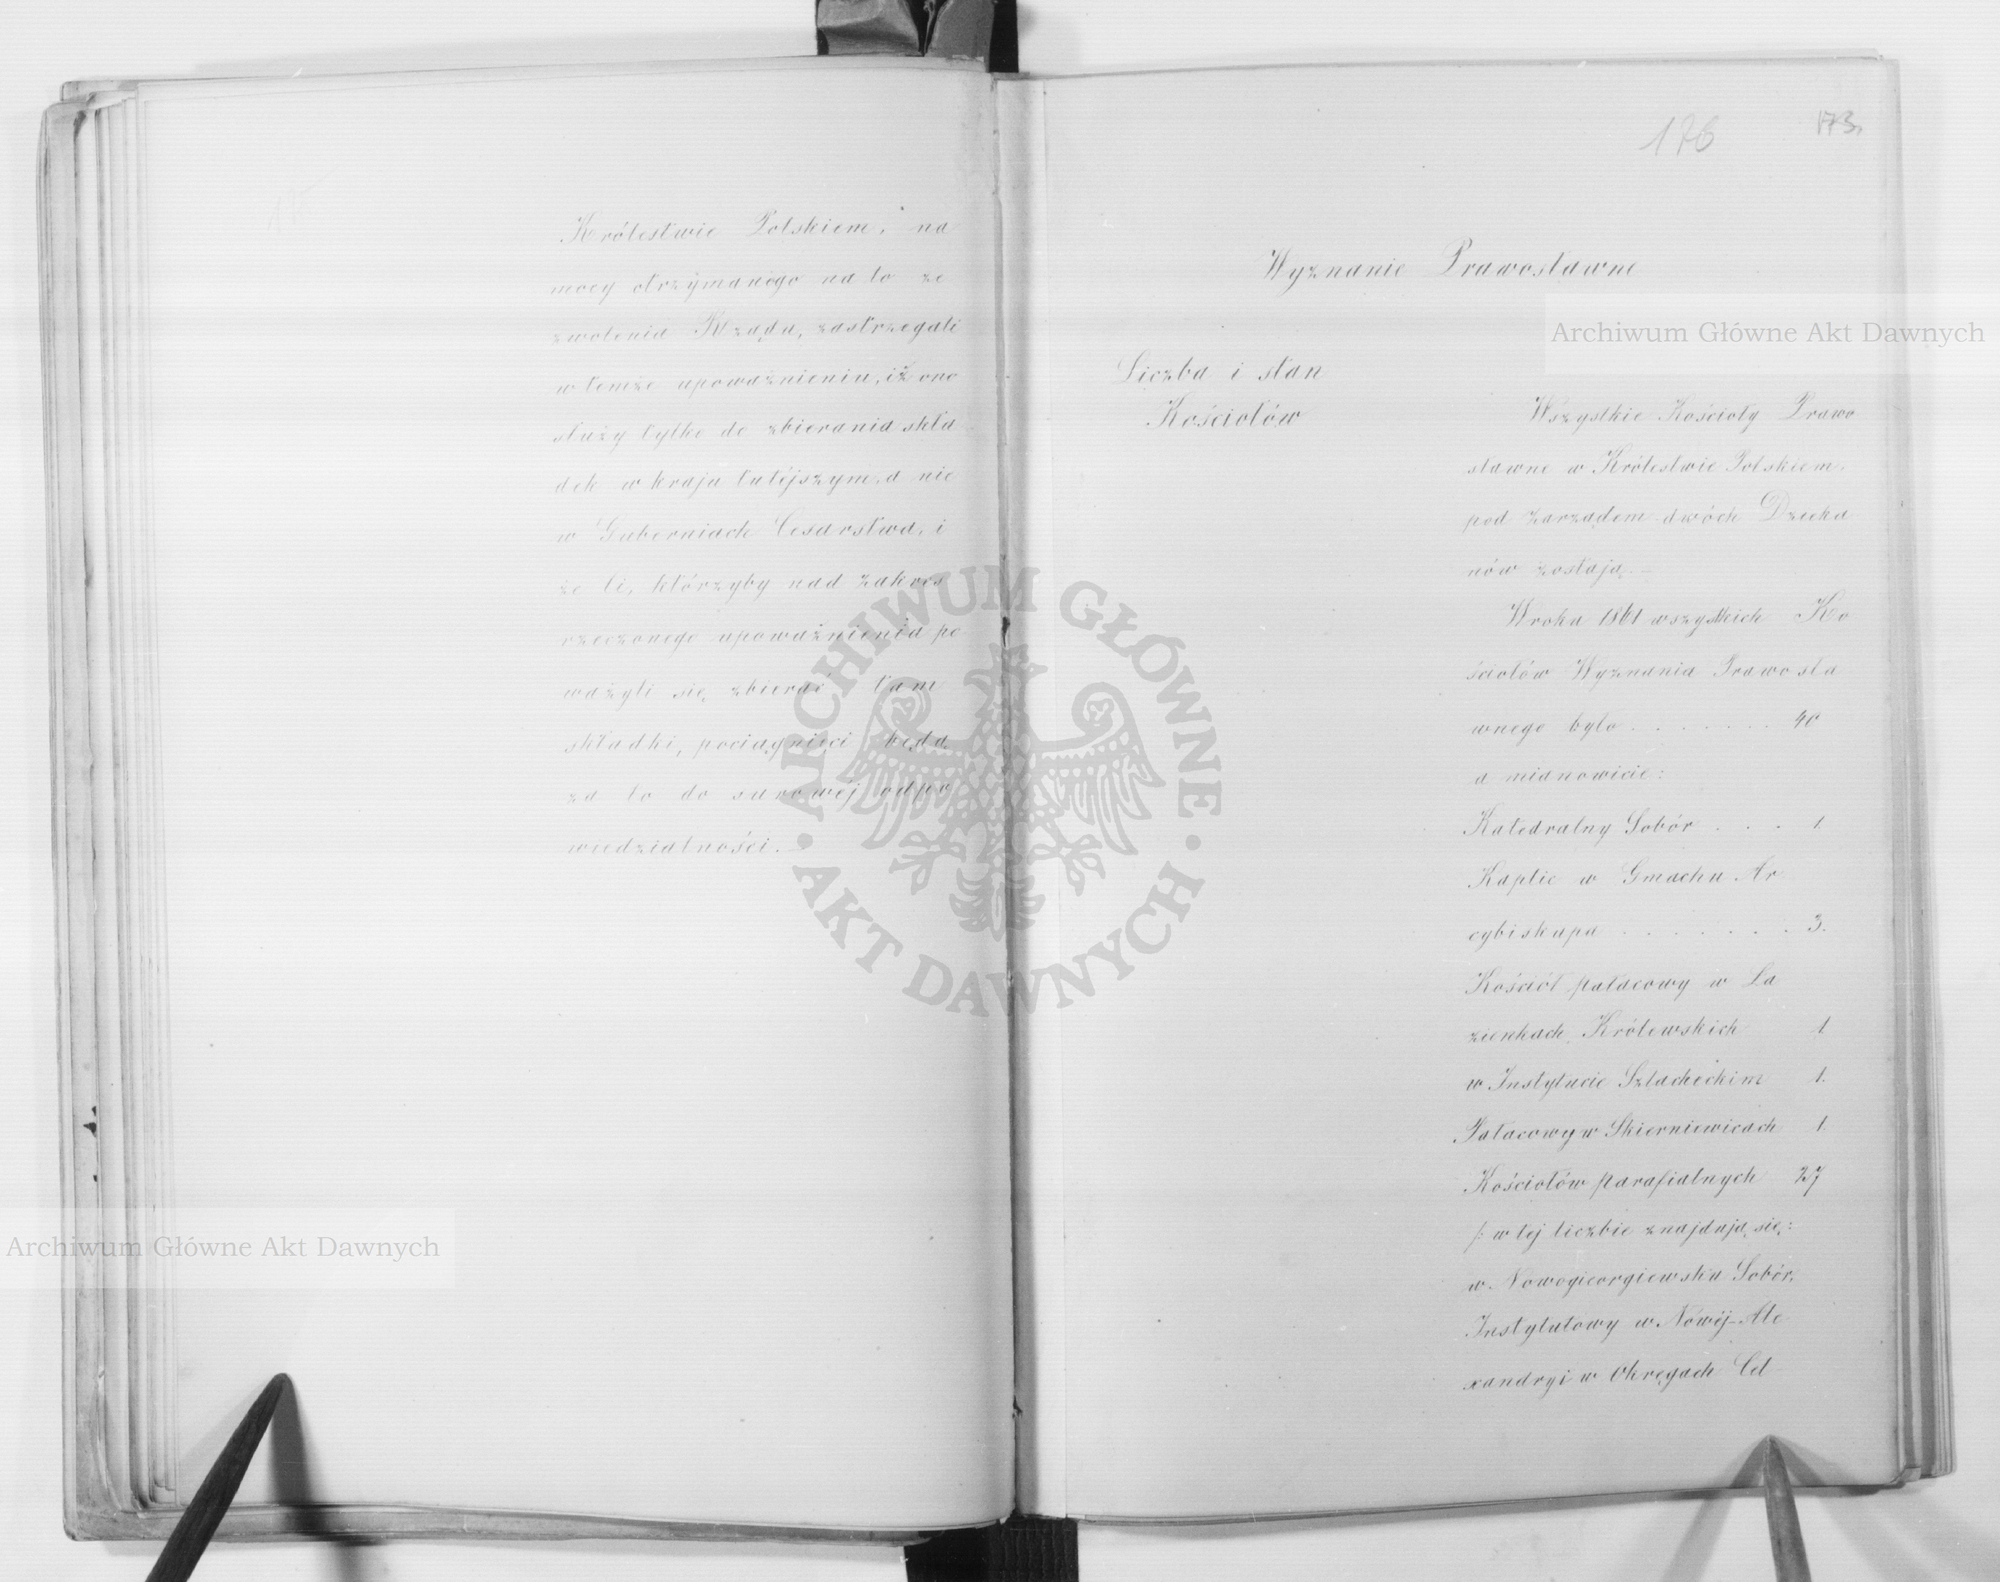 Królestwie Polskiem, na
mocy otrzymanego na to ze
zwolenia Rządu, zastrzegali
w temże upoważnieniu, iż one
służy tylko do zbierania skła
dek w kraju tutéjszym, a nie
w Guberniach Cesarstwa, i
że ci, którzyby nad zakres
rzeczonego upoważnienia po
ważyli się zbierać tam
składki, pociągnięci będą
za to do surowéj odpo
wiedzialności.
176
173.
Wyznanie Prawosławne
Liczba i stan
Kościołów
Wszystkie Kościoły Prawo
sławne w Królestwie Polskiem,
pod zarządem dwóch Dzieka
nów zostają.
W roku 1861 wszystkich Ko
ściołów Wyznania Prawosła
wnego było . . . . . . . 40
a mianowicie:
Katedralny Sobór . . . 1.
Kaplic w Gmachu Ar
cybiskupa . . . . . . . 3.
Kościół pałacowy w Ła
zienkach Królewskich 1
w Instytucie Szlacheckim 1.
Pałacowy w Skierniewicach 1.
Kościołów parafialnych 27
/: w tej liczbie znajdują się:
w Nowogieorgiewsku Sobór,
Instytutowy w Nowéj-Ale
xandryi w Okręgach Cel
Archiwum Główne Akt Dawnych
Archiwum Główne Akt Dawnych
ARCHIWUM GŁÓWNE
AKT DAWNYCH